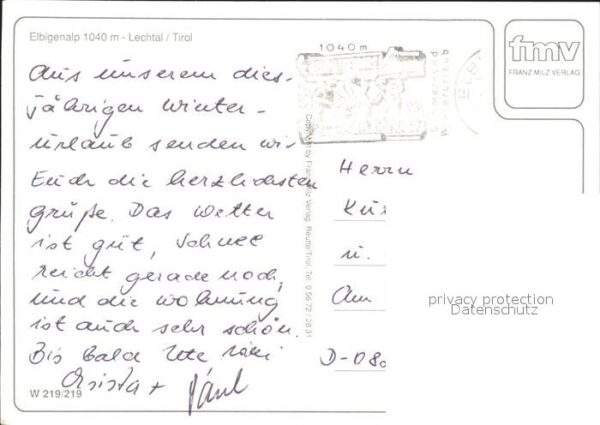 Elbigenalp 1040 m - Lechtal / Tirol
fmv
FRANZ MILZ VERLAG
1040 m
Aus unserem dies-
jährigen Winter-
urlaub senden wir
Euch die herzlichsten
Grüße. Das Wetter
ist gut, Schnee
reicht gerade noch,
und die Wohnung
ist auch sehr schön.
Bis bald
+ Paul
Herrn
u.
Am
D-080
Copyright by Franz Milz Verlag Reutte/Tirol Tel. 0 56 72 / 28 31
privacy protection
Datenschutz
W 219/219